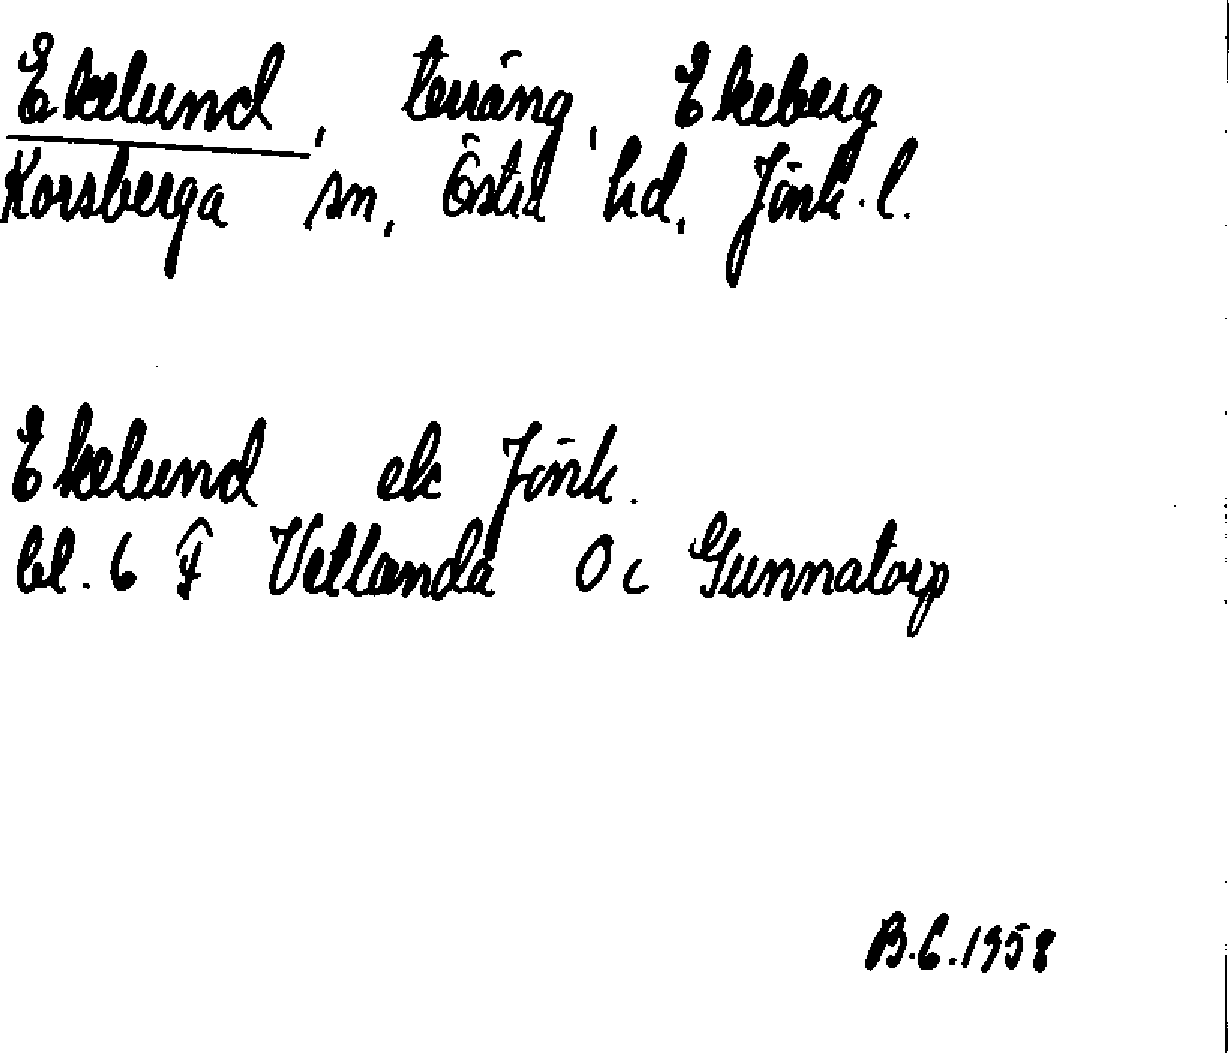 Ekelund, terräng, Ekeberg
Korsberga sn, Östra hd, Jönk. l.
Ekelund ek Jönk.
bl. 6 F Vetlanda Oc Gunnatorp
B.C.1958